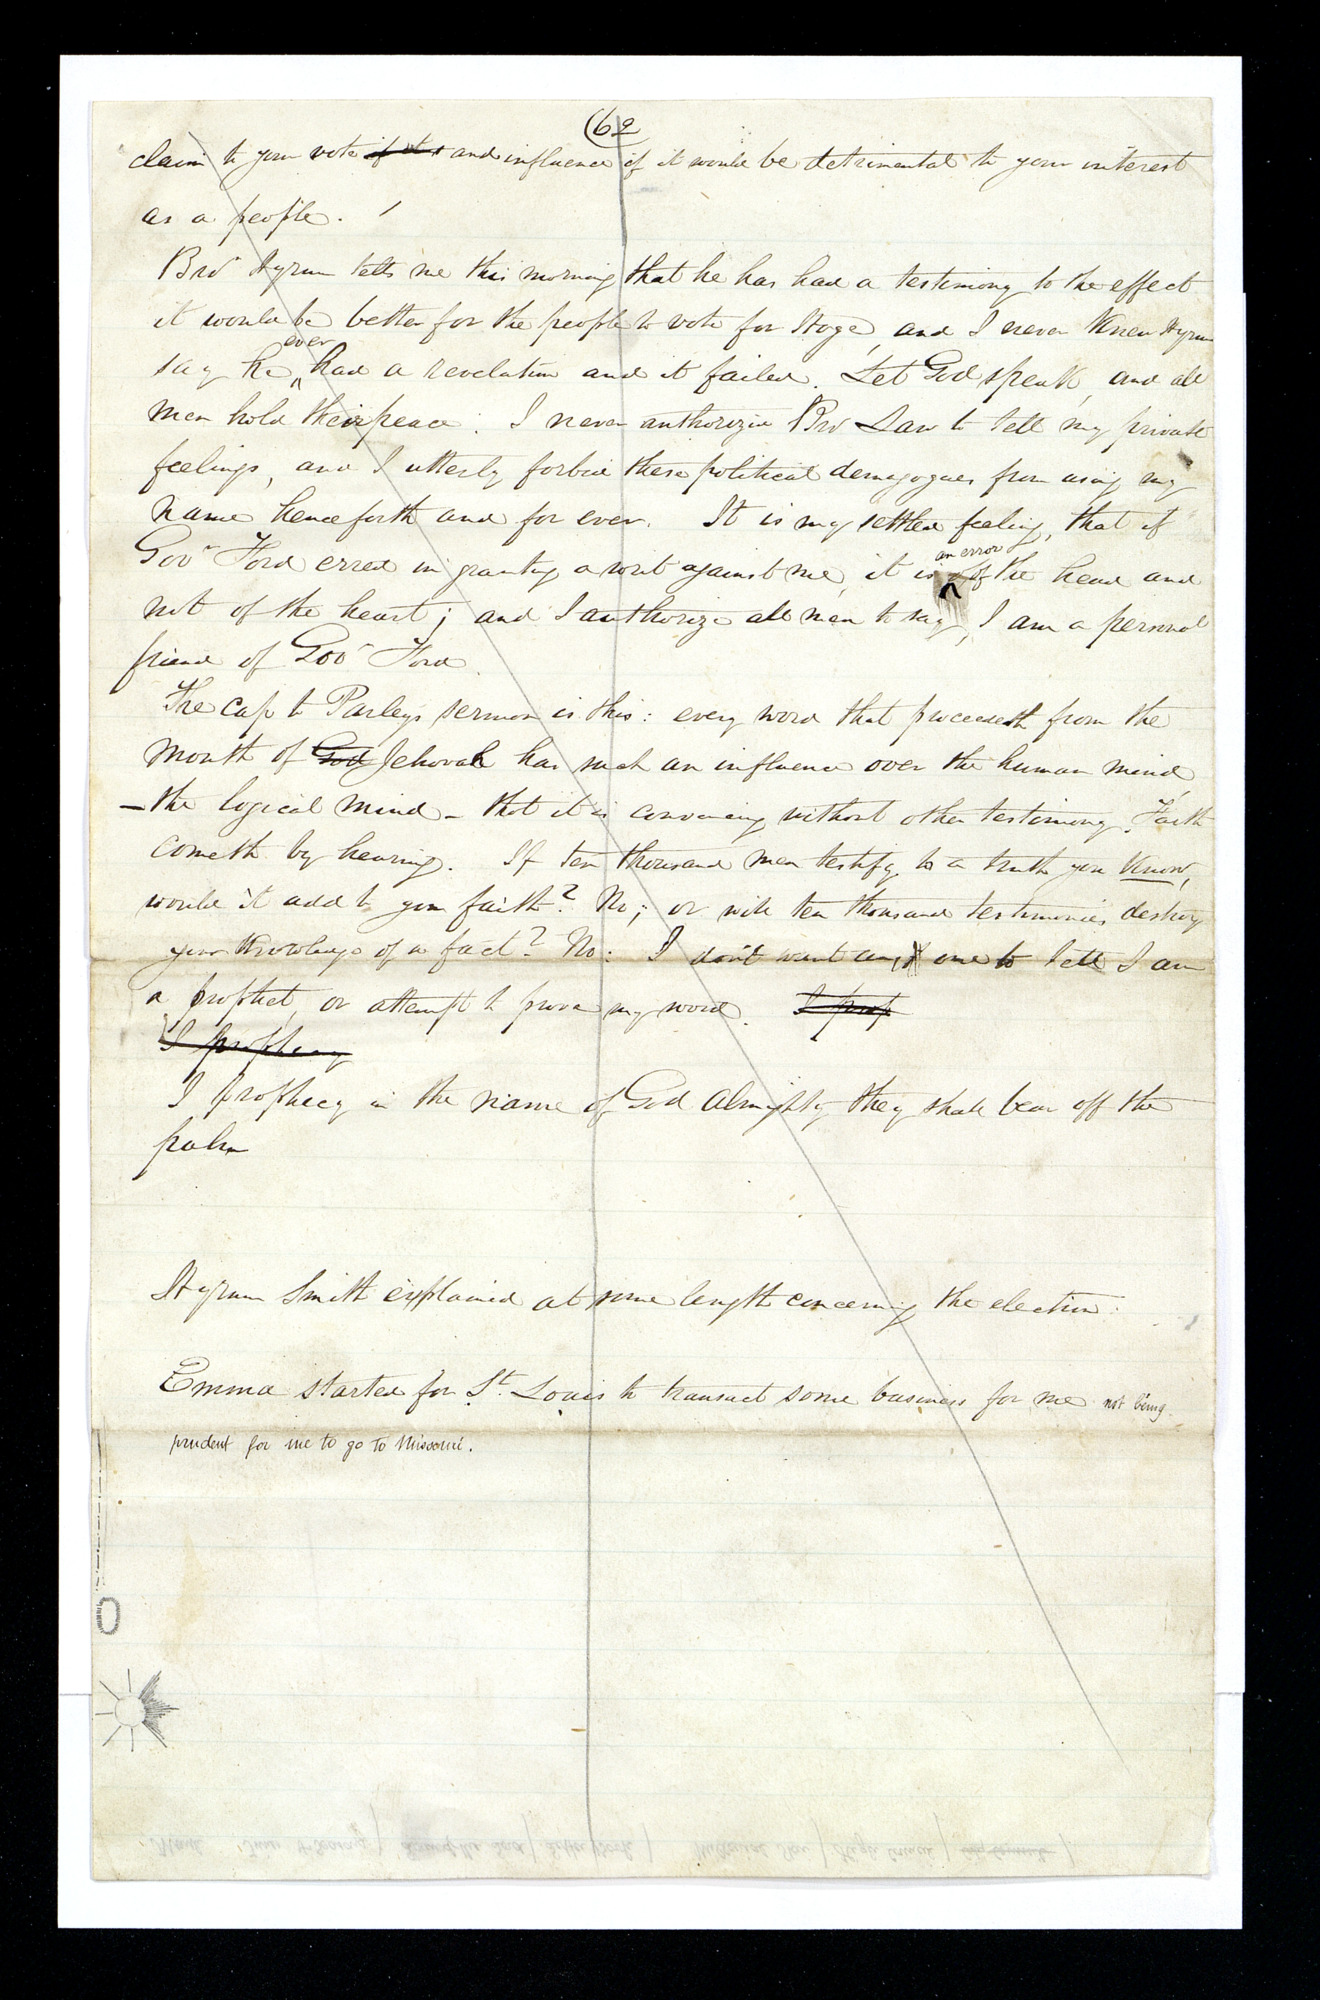 (62
claim to your vote if it s and influence if it would be detrimental to your interest
as a people.
Bror Hyrum tells me this morning that he has had a testimony to the effect
it would be better for the people to vote for Hoge, and I never knew Hyrum
ever
say he ^ had a revelation and it failed. Let God speak, and all
men hold their peace. I never authorized Bro Law to tell my private
feelings, and I utterly forbid these political demagogues from using my
name henceforth and for ever. It is my settled feeling, that if
an error
Govr Ford erred in granting a writ against me, it is ^ of the head and
not of the heart; and I authorize all men to say, I am a personal
friend of Govr Ford.
The cap to Parleys sermon is this: every word that proceedeth from the
mouth of God Jehovah has such an influence over the human mind
– the logical mind – that it is convincing without other testimony. Faith
cometh by hearing. If ten thousand men testify to a truth you know,
would it add to your faith? No; or will ten thousand testimonies destroy
your knowledge of a fact? No: I don't want any one to tell I am
a prophet, or attempt to prove my word. I prop
I prophecy
I prophecy in the name of God Almighty they shall bear off the
palm
Hyrum Smith explained at some length concerning the election.
Emma started for St. Louis to transact some business for me not being
prudent for me to go to Missouri.